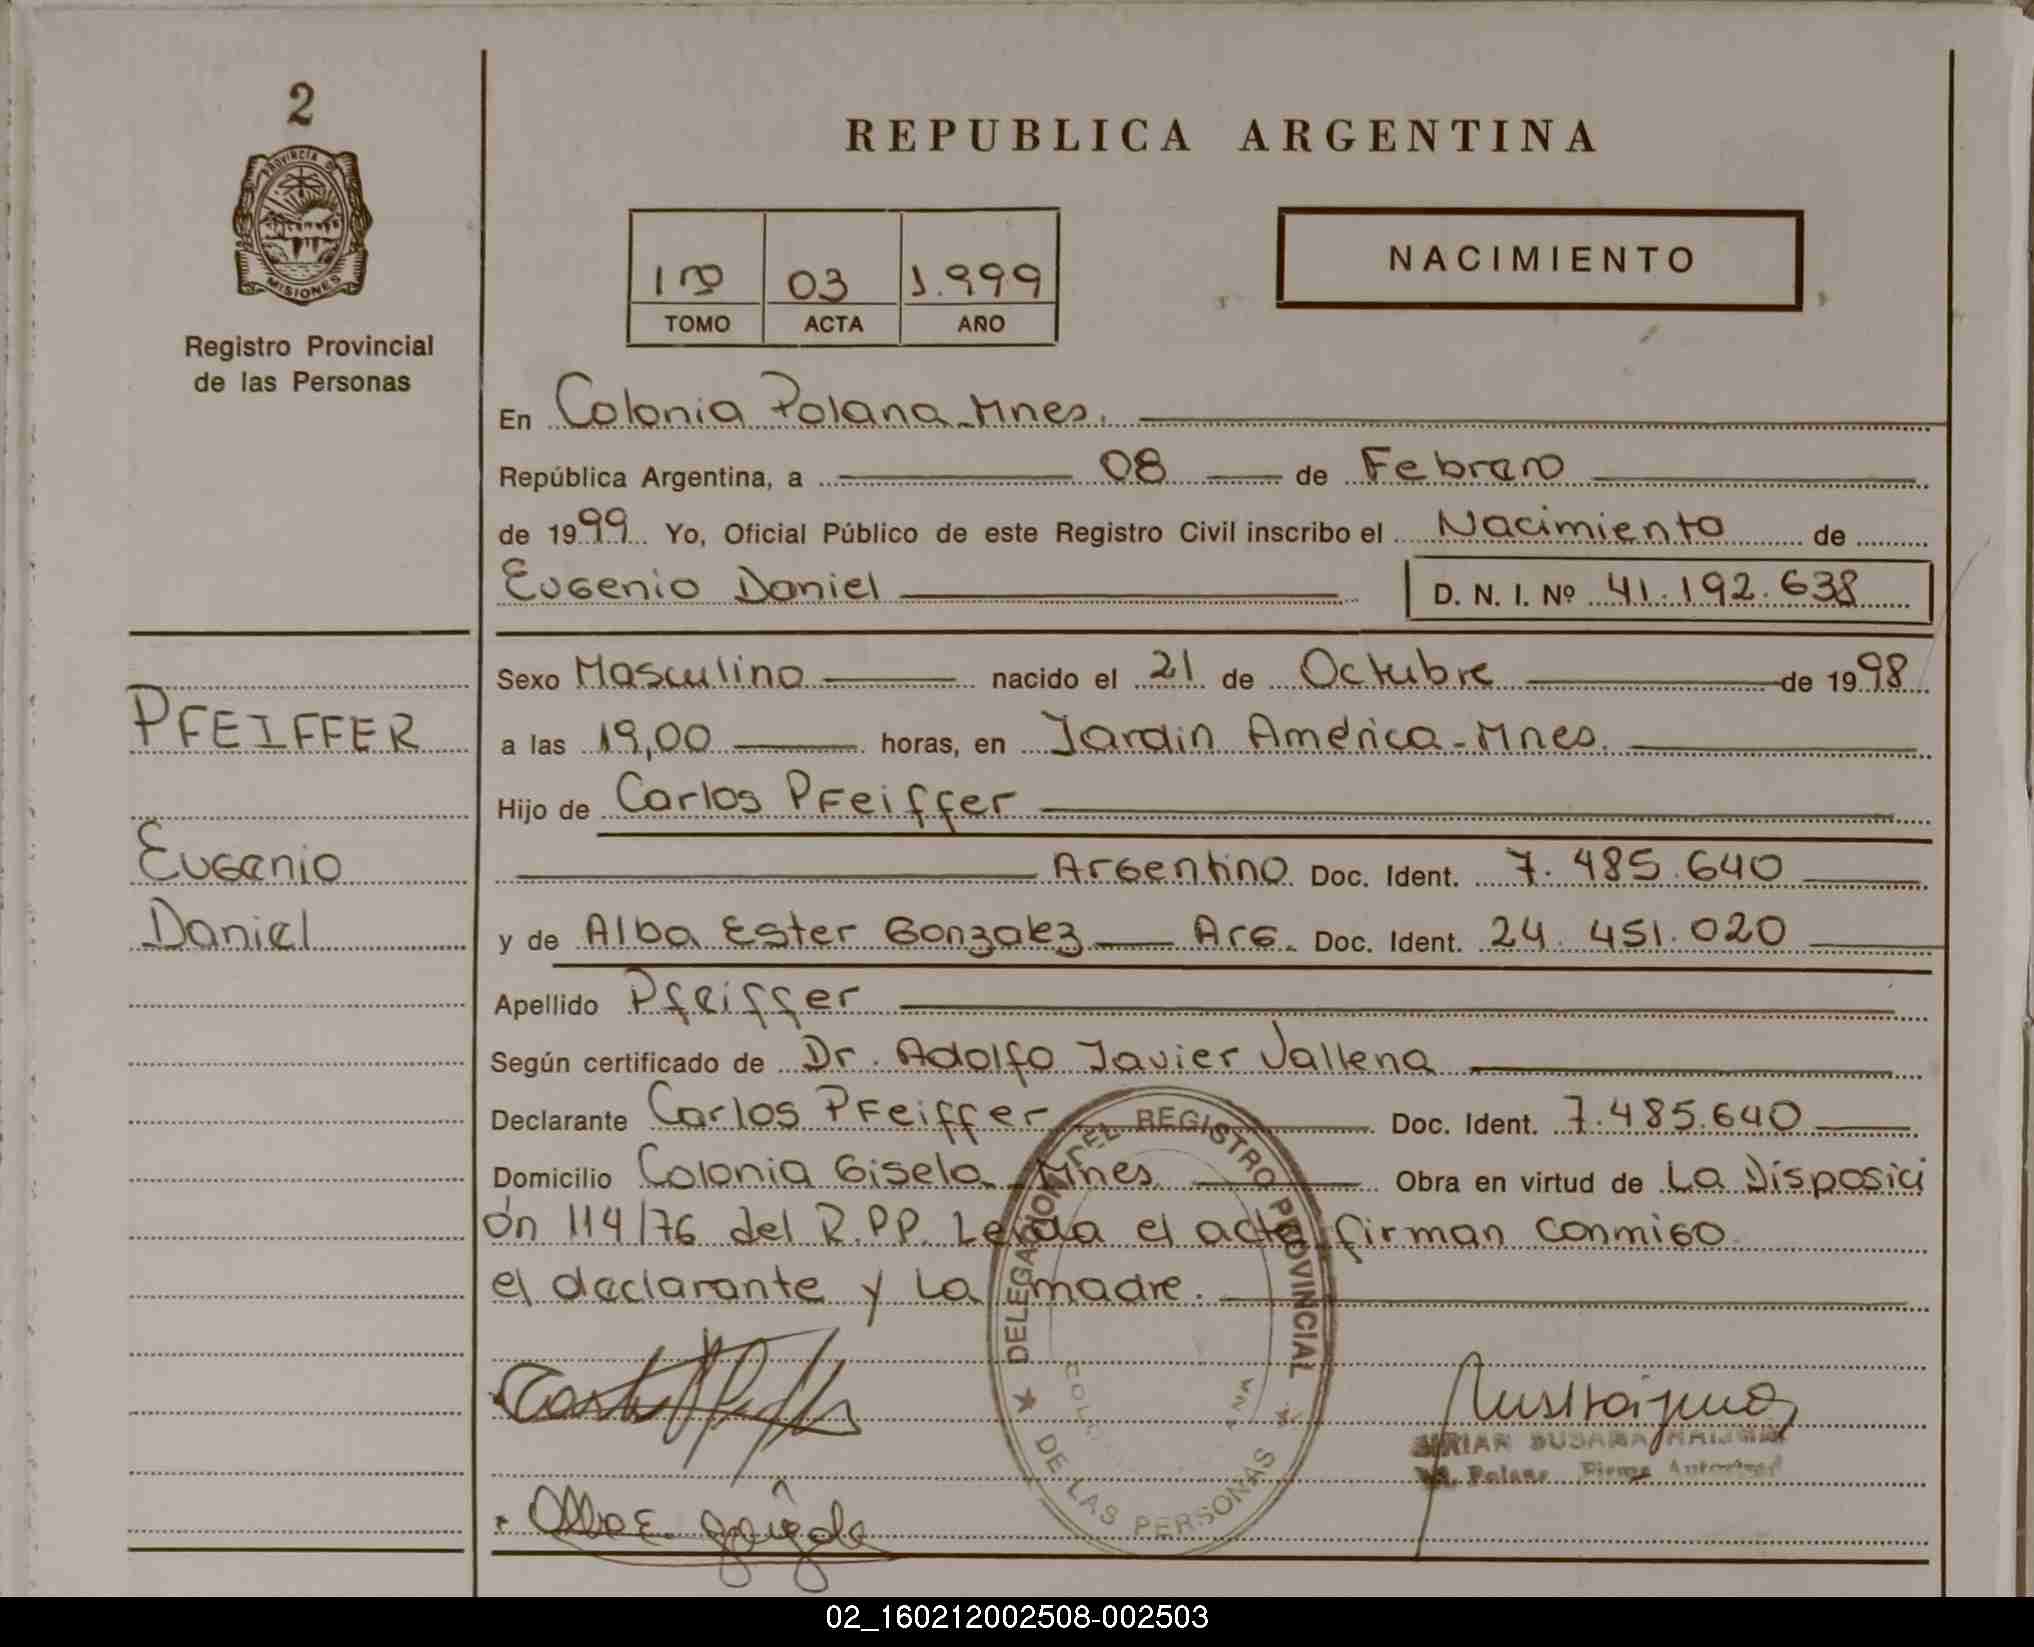 2
PROVINCIA DE
MISIONES
Registro Provincial
de las Personas
REPUBLICA ARGENTINA
1ro 03 1.999
TOMO ACTA AÑO
NACIMIENTO
En Colonia Polana-Mnes.
República Argentina, a 08 de Febrero
de 1999 Yo, Oficial Público de este Registro Civil inscribo el Nacimiento de
Eugenio Daniel D. N. I. Nº 41.192.638
PFEIFFER
Eugenio
Daniel
Sexo Masculino nacido el 21 de Octubre de 1998
a las 19,00 horas, en Jardin América-Mnes.
Hijo de Carlos PFeiffer
Argentino Doc. Ident. 7.485.640
y de Alba Ester Gonzalez Arg. Doc. Ident. 24.451.020
Apellido Pfeiffer
Según certificado de Dr. Adolfo Javier Vallena
Declarante Carlos PFeiffer Doc. Ident. 7.485.640
Domicilio Colonia Gisela-Mnes Obra en virtud de La Disposici
ón 114/76 del R.PP. Leida el acta firman conmigo
el declarante y La madre.
DELEGACION DEL REGISTRO PROVINCIAL
DE LAS PERSONAS
Alba E.
02_160212002508-002503